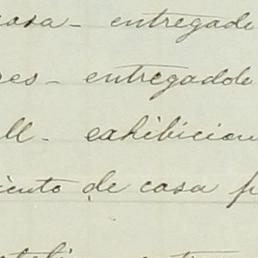 casa - entregad
es - entregadole
ll - exhibicion
iento de casa p